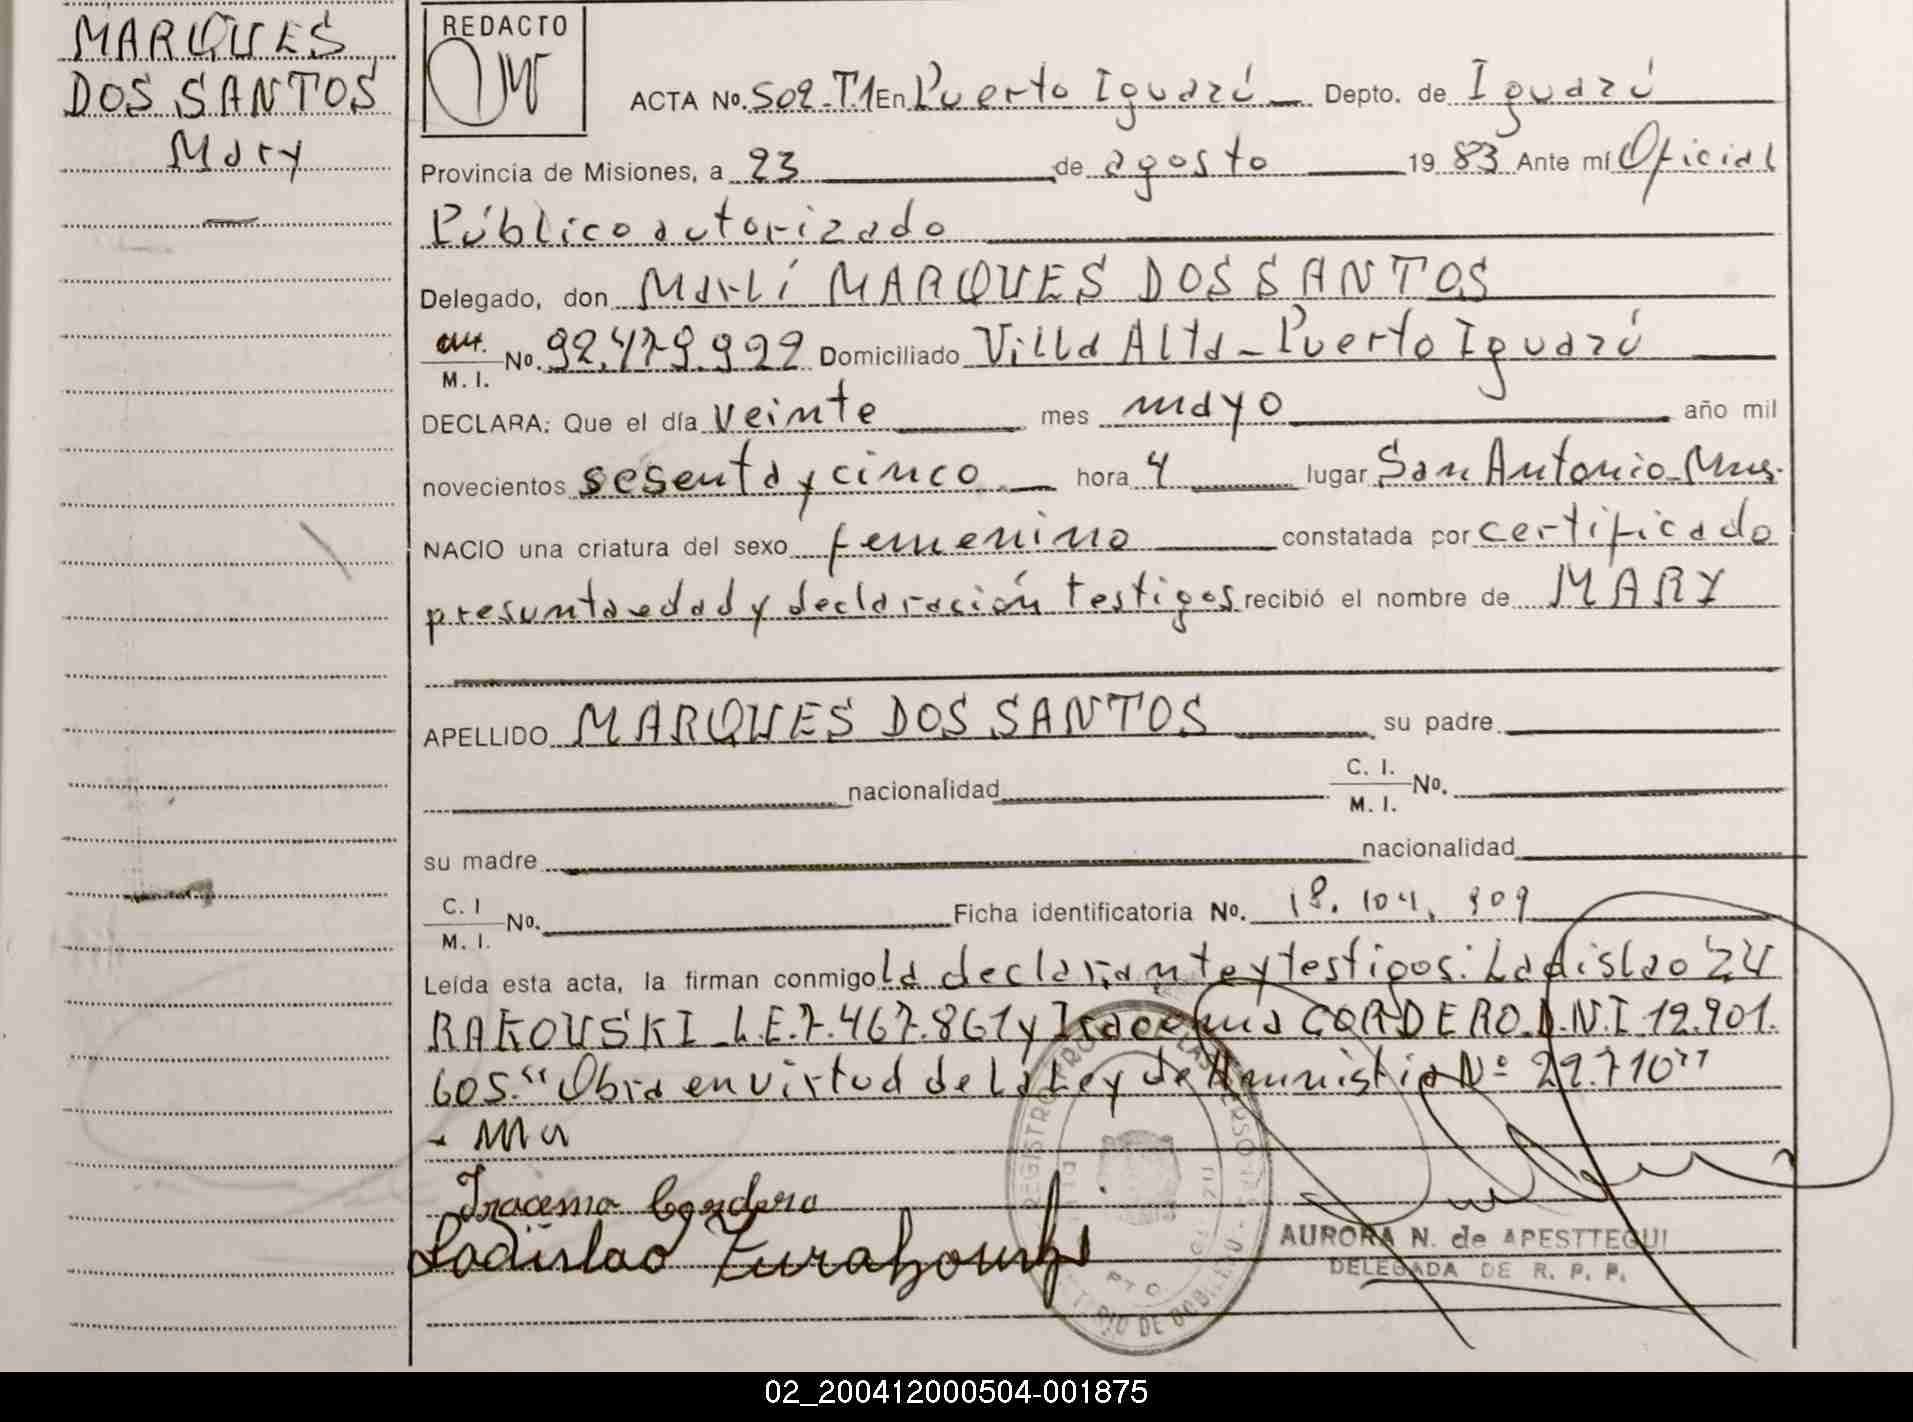 MARQUES
DOS SANTOS
Mary
REDACTO
ACTA No. 502-T.1 En Puerto Iguazú Depto. de Iguazú
Provincia de Misiones, a 23 de agosto 19 83 Ante mí Oficial
Público autorizado
Delegado, don Marlí MARQUES DOS SANTOS
M. I. No. 92.479.922 Domiciliado Villa Alta - Puerto Iguazú
DECLARA: Que el día veinte mes mayo año mil
novecientos sesenta y cinco hora 4 lugar San Antonio - Mnes.
NACIO una criatura del sexo femenino constatada por certificado
presunta edad y declaración testigos recibió el nombre de MARY
APELLIDO MARQUES DOS SANTOS su padre
nacionalidad C. I. M. I. No.
su madre nacionalidad
C. I M. I. No. Ficha identificatoria No. 18.104.909
Leída esta acta, la firman conmigo la declarante y testigos: Ladislao ZU
RAKOUSKI - L.E.7.467.861 y Iracema CORDERO D.N.I 12.901.
605. "Obra en virtud de la Ley de Amnistia Nº 22.710"
Iracema Cordero
Ladislao Zurakouski
AURORA N. de APESTTEGUI
DELEGADA DE R. P. P.
02_200412000504-001875